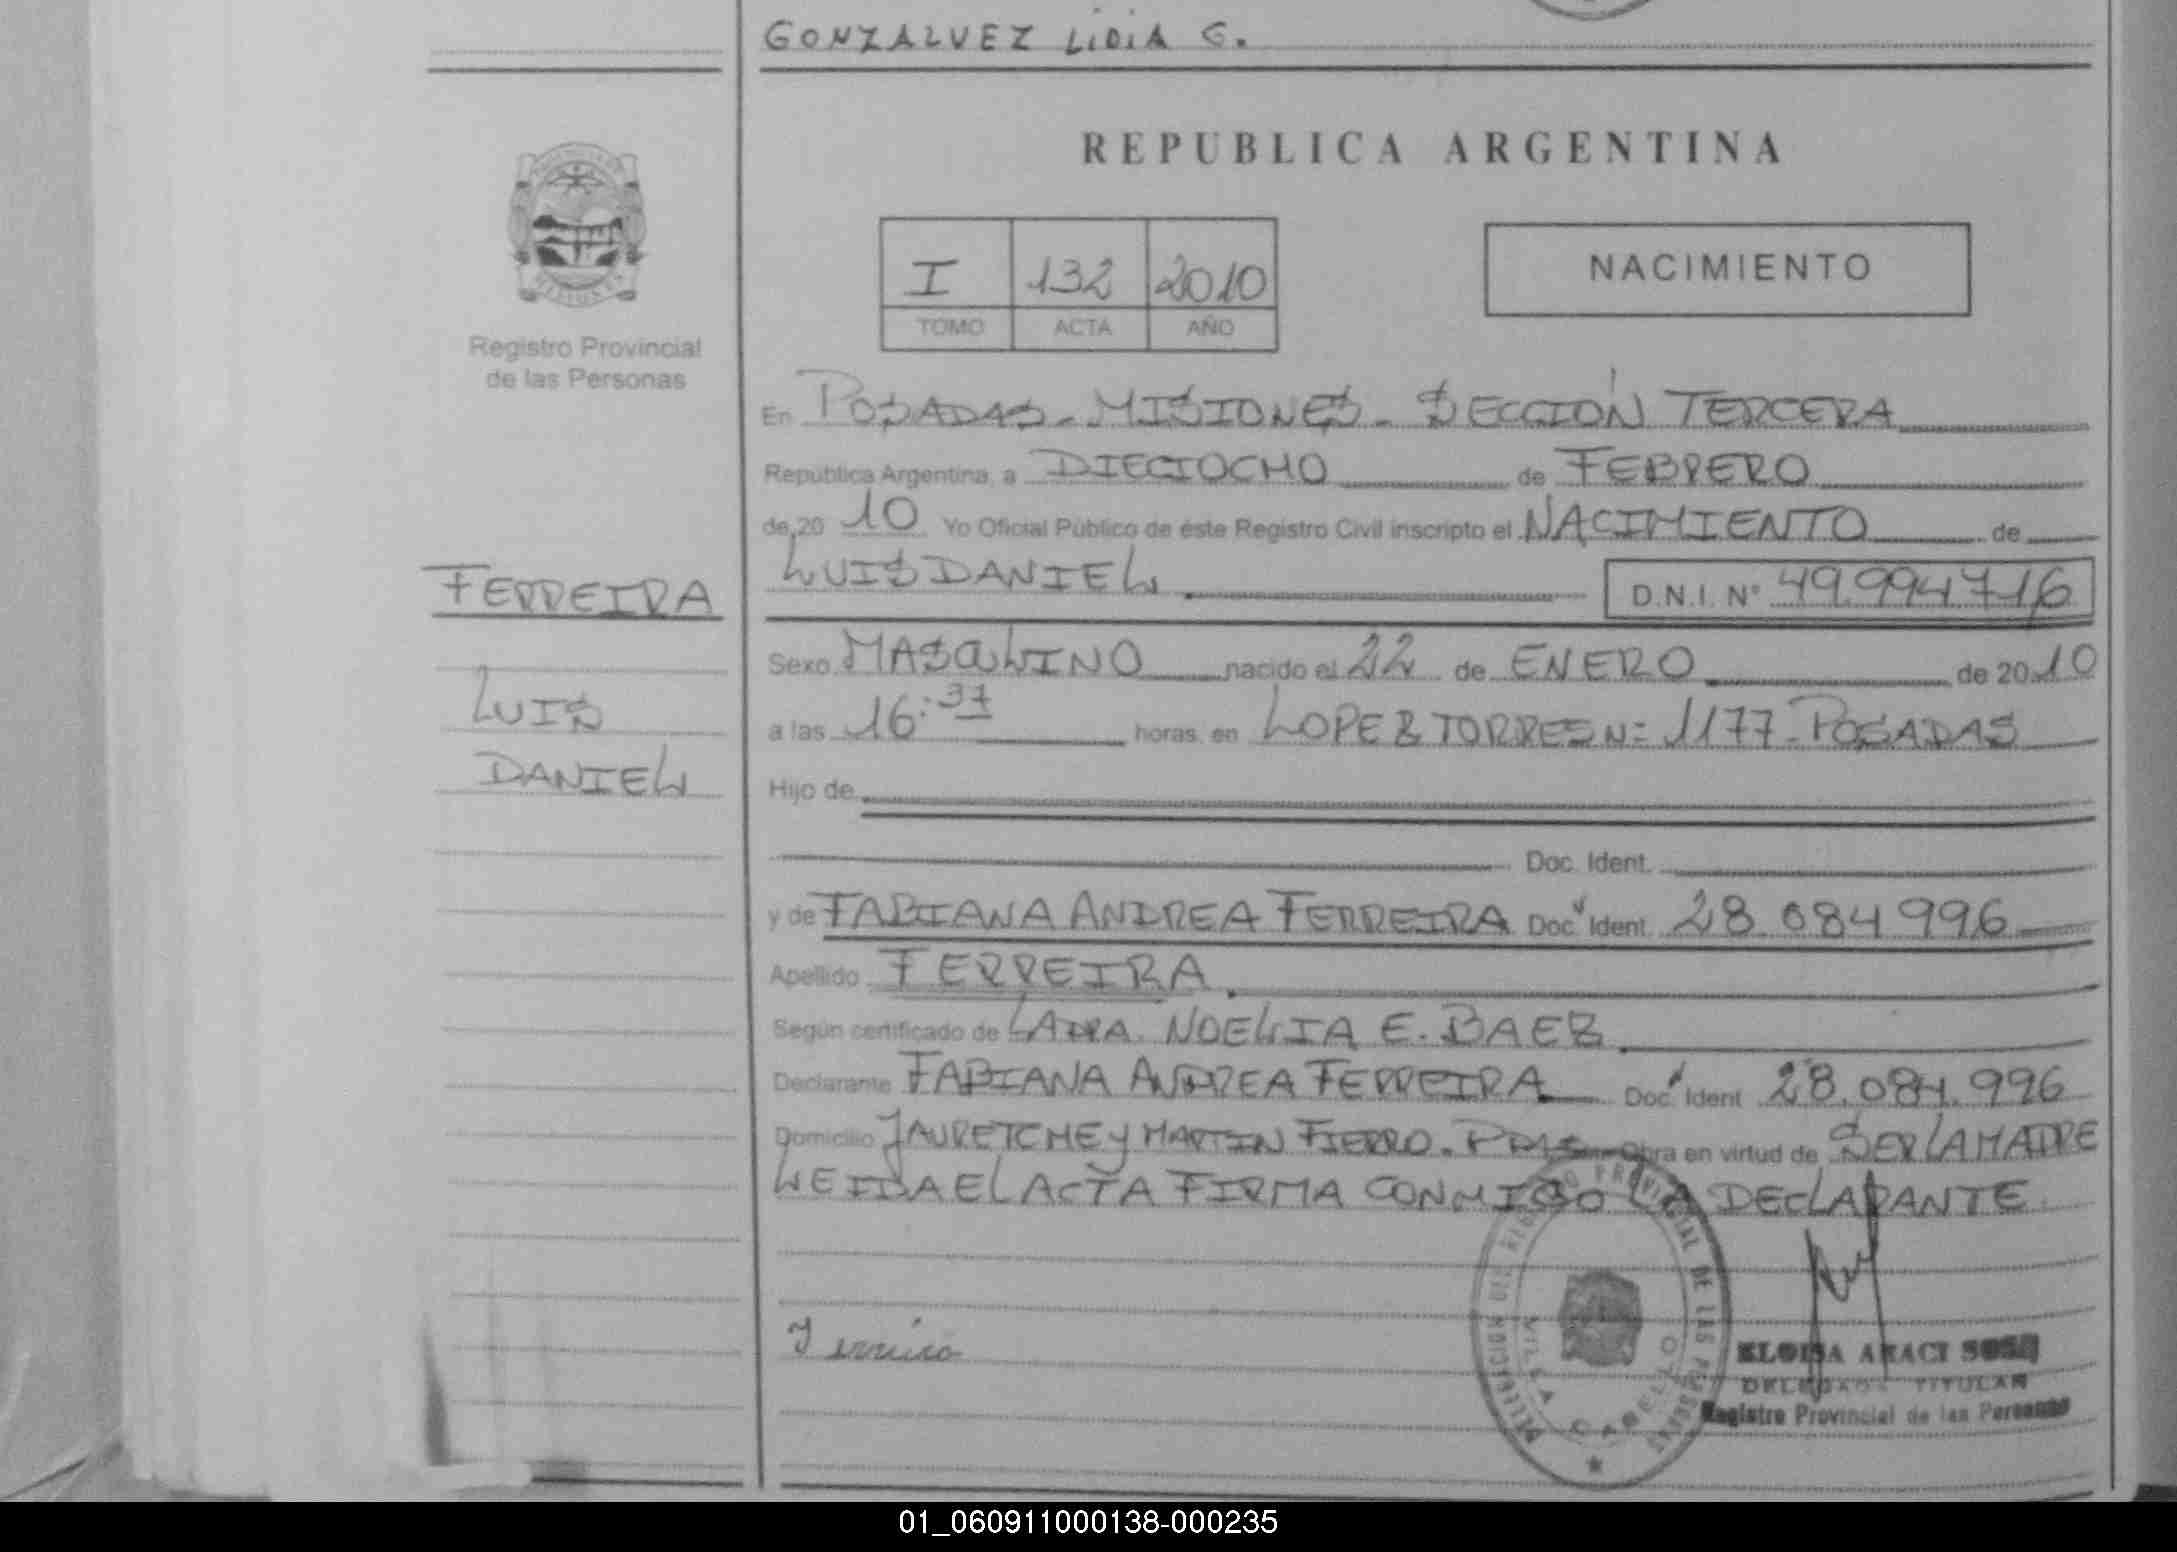 GONZALVEZ LIDIA G.
REPUBLICA ARGENTINA
I 132 2010
TOMO ACTA AÑO
NACIMIENTO
Registro Provincial
de las Personas
En POSADAS - MISIONES - SECCIÓN TERCERA
República Argentina, a DIECIOCHO de FEBRERO
de 20 10 Yo Oficial Público de éste Registro Civil inscripto el NACIMIENTO de
LUIS DANIEL D.N.I. N° 49.994716
FERREIRA
LUIS
DANIEL
Sexo MASCULINO nacido el 22 de ENERO de 20 10
a las 16:37 horas, en LOPEZ TORRES N= 1177 - POSADAS
Hijo de
Doc. Ident.
y de FABIANA ANDREA FERREIRA Doc. Ident. 28.084996
Apellido FERREIRA
Según certificado de NOELIA E. BAEZ
Declarante FABIANA ANDREA FERREIRA Doc. Ident. 28.084.996
Domicilio JAURETCHE y MARTIN FIERRO. Obra en virtud de SER LA MADRE
LEIDA EL ACTA FIRMA CONMIGO LA DECLARANTE
DELEGACION DEL REGISTRO PROVINCIAL DE LAS PERSONAS
VILLA CABELLO
ELOISA ARACI SOSA
DELEGADA TITULAR
Registro Provincial de las Personas
01_060911000138-000235